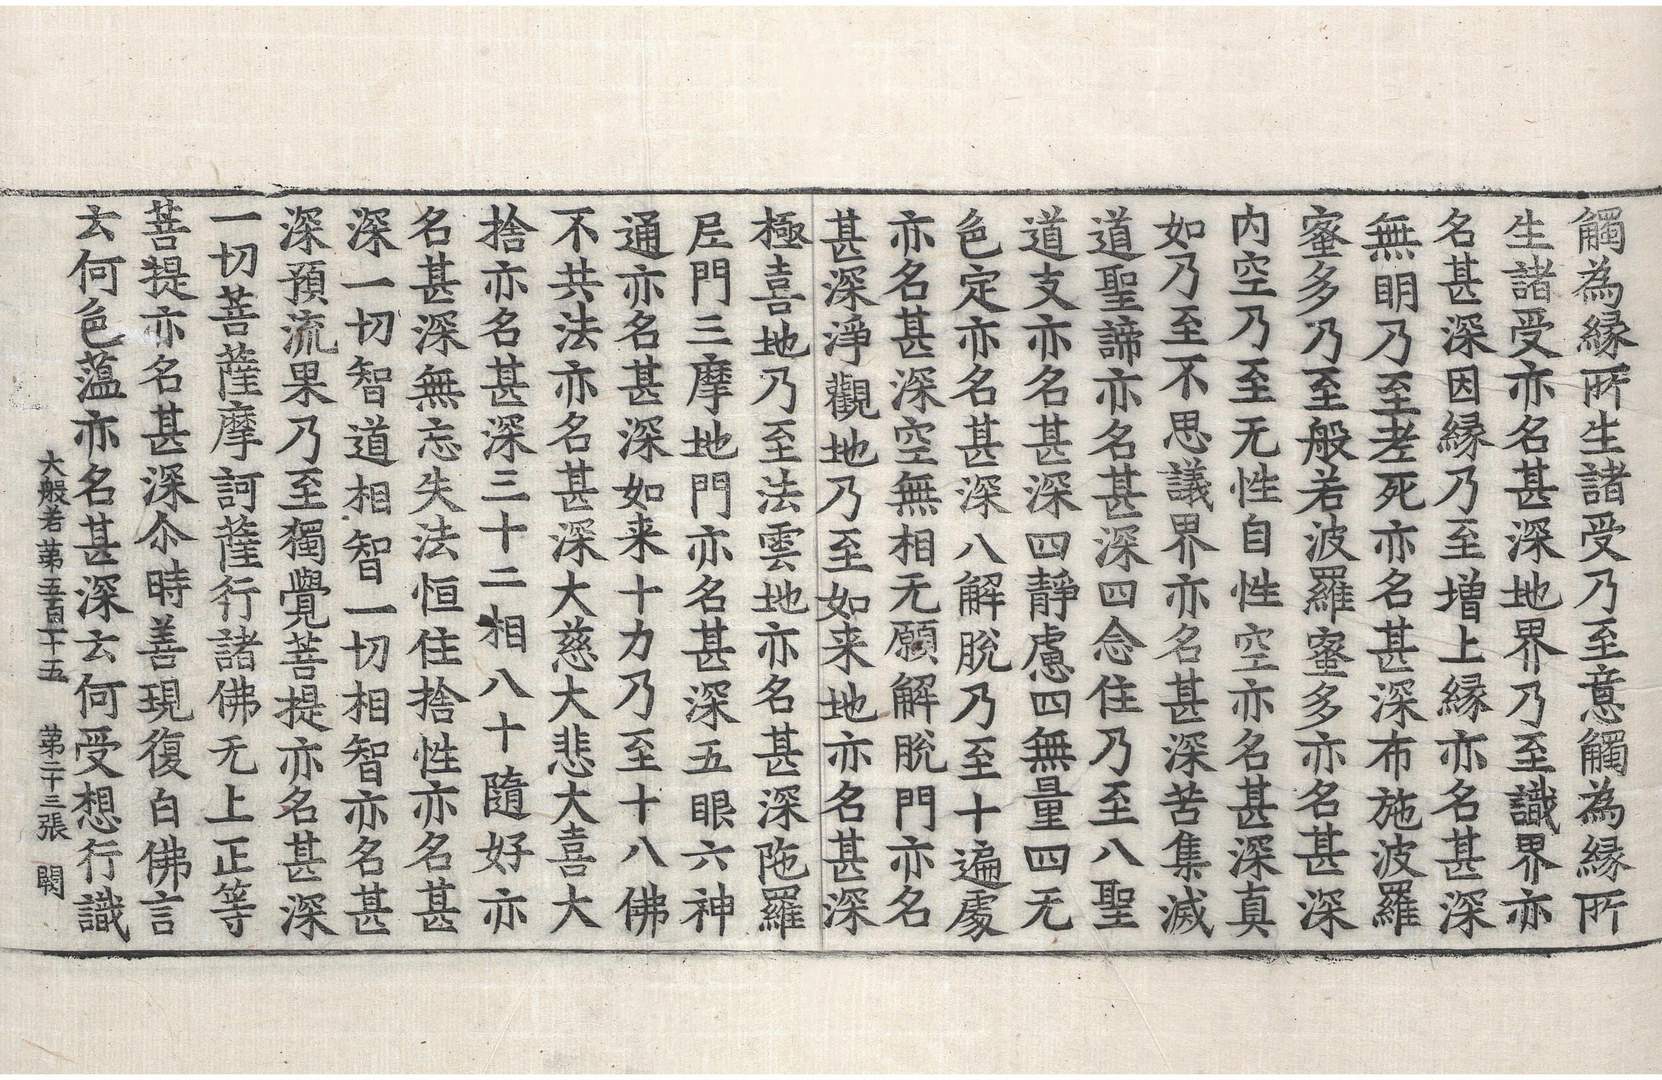 觸為縁所生諸受乃至意觸為縁所
生諸受亦名甚深地界乃至識界亦
名甚深因縁乃至增上縁亦名甚深
無明乃至老死亦名甚深布施波羅
蜜多乃至般若波羅蜜多亦名甚深
内空乃至无性自性空亦名甚深真
如乃至不思議界亦名甚深苦集滅
道聖諦亦名甚深四念住乃至八聖
道支亦名甚深四靜慮四無量四无
色定亦名甚深八解脫乃至十遍處
亦名甚深空無相无願解脫門亦名
甚深淨觀地乃至如来地亦名甚深
極喜地乃至法雲地亦名甚深陁羅
尼門三摩地門亦名甚深五眼六神
通亦名甚深如来十力乃至十八佛
不共法亦名甚深大慈大悲大喜大
捨亦名甚深三十二相八十隨好亦
名甚深無忘失法恒住捨性亦名甚
深一切智道相智一切相智亦名甚
深預流果乃至獨覺菩提亦名甚深
一切菩薩摩訶薩行諸佛无上正等
菩提亦名甚深尒時善現復白佛言
云何色蘊亦名甚深云何受想行識
大般若第五百十五 第二十三張 闕